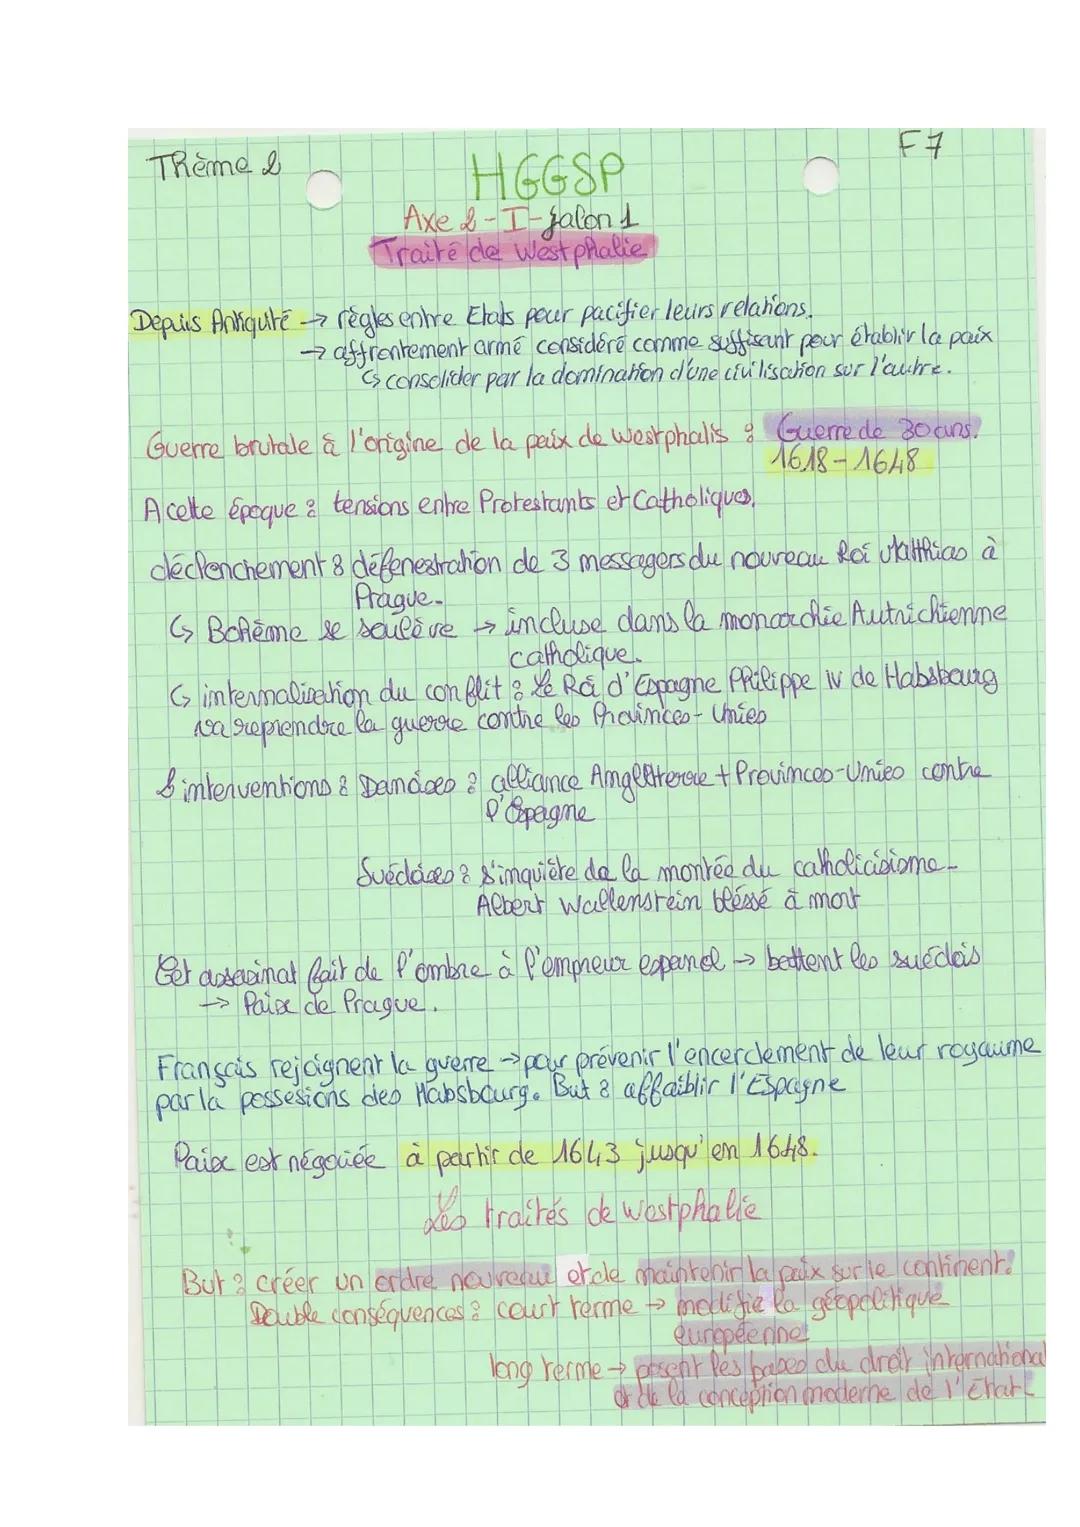 Thème 2
F7
HGGSP
Axe 2 - I - jalon 1
Traité de Westphalie
Depuis Antiquité → règles entre Etats pour pacifier leurs relations.
→ affrontement armé considéré comme suffisant pour établir la paix
↳ consolider par la domination d'une civilisation sur l'autre.
Guerre brutale à l'origine de la paix de Westphalis : Guerre de 30 ans.
1618 - 1648
A cette époque : tensions entre Protestants et Catholiques.
déclenchement : défenestration de 3 messagers du nouveau Roi Matthias à
Prague.
↳ Bohème se soulève → incluse dans la monarchie Autrichienne
catholique.
↳ internalisation du conflit : Le Roi d'Espagne Philippe IV de Habsbourg
va reprendre la guerre contre les Provinces-Unies
↳ interventions : Danoises : alliance Angleterre + Provinces-Unies contre
l'Espagne
Suédoises : s'inquiète de la montée du catholicisisme -
Albert Wallenstein bléssé à mort
Cet assasinat fait de l'ombre à l'empreur espanol → battent les suédois
→ Paix de Prague.
Français rejoignent la guerre → pour prévenir l'encerclement de leur royaume
par la possesions des Habsbourg. But : affaiblir l'Espagne
Paix est négociée à partir de 1643 jusqu'en 1648.
Les traités de Westphalie
But : créer un ordre nouveau et de maintenir la paix sur le continent.
Double conséquences : court terme → modifie la géopolitique
européenne
long terme → posent les bases du droit international
et de la conception moderne de l'Etat.